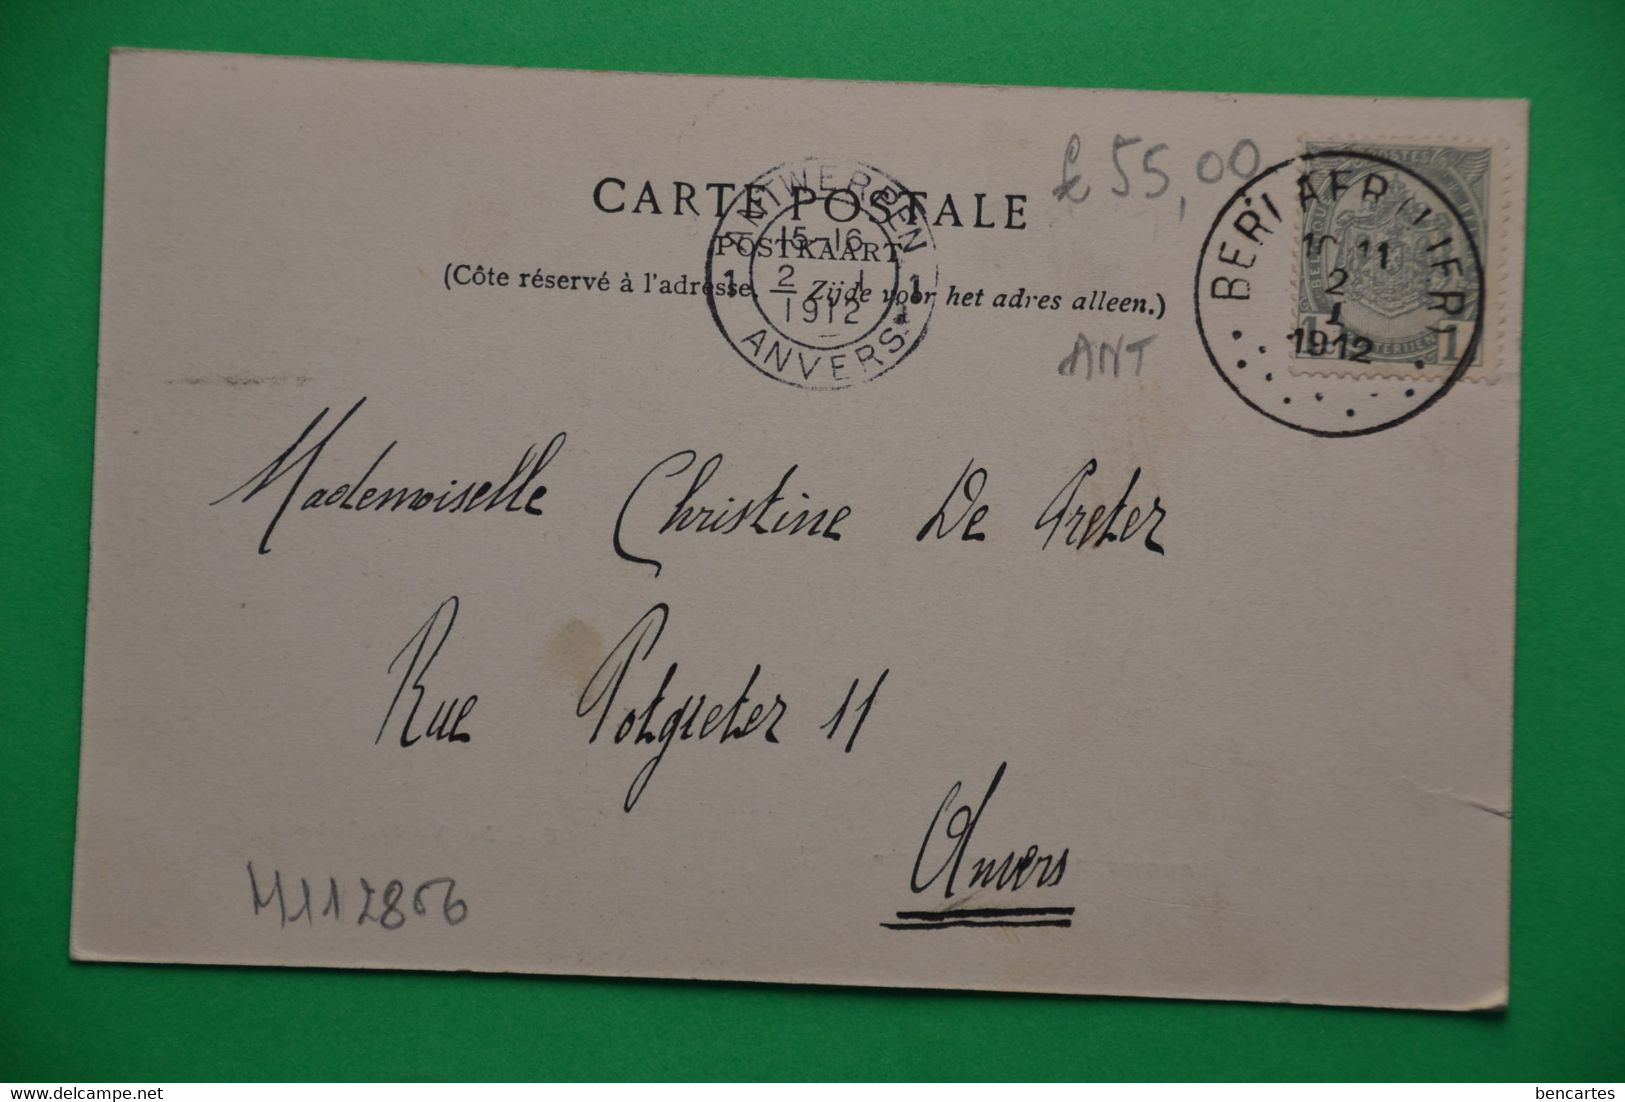 CARTE POSTALE
POSTKAART
(Côte réservé à l'adresse. Zijde voor het adres alleen.)
ANTWERPEN
15-16
1 2 1 1
1912
ANVERS
£ 55,00
ANT
BERLAER (LIER)
11
2
1
1912
POSTES
1 1
Mademoiselle Christine De Preter
Rue Potgieter 11
Anvers
M112806
bencartes